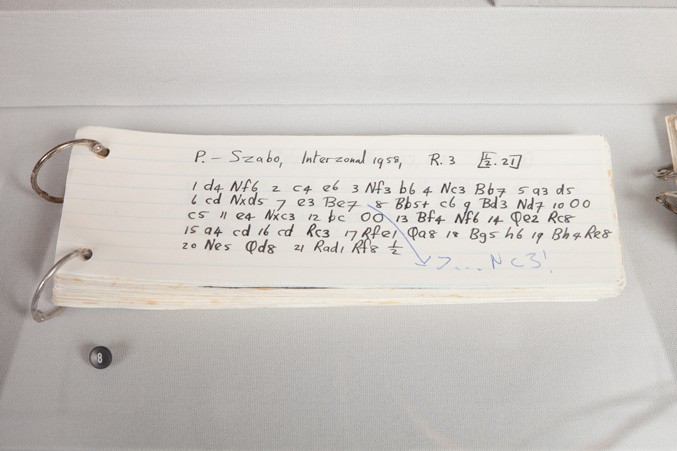 P. – Szabo, Interzonal 1958, R.3 [½. 21]
1 d4 Nf6 2 c4 e6 3 Nf3 b6 4 Nc3 Bb7 5 a3 d5
6 cd Nxd5 7 e3 Be7 8 Bb5+ c6 9 Bd3 Nd7 10 00
c5 11 e4 Nxc3 12 bc 00 13 Bf4 Nf6 14 Qe2 Rc8
15 a4 cd 16 cd Rc3 17 Rfe1 Qa8 18 Bg5 h6 19 Bh4 Re8
20 Ne5 Qd8 21 Rad1 Rf8 ½
7... Nc3!
8